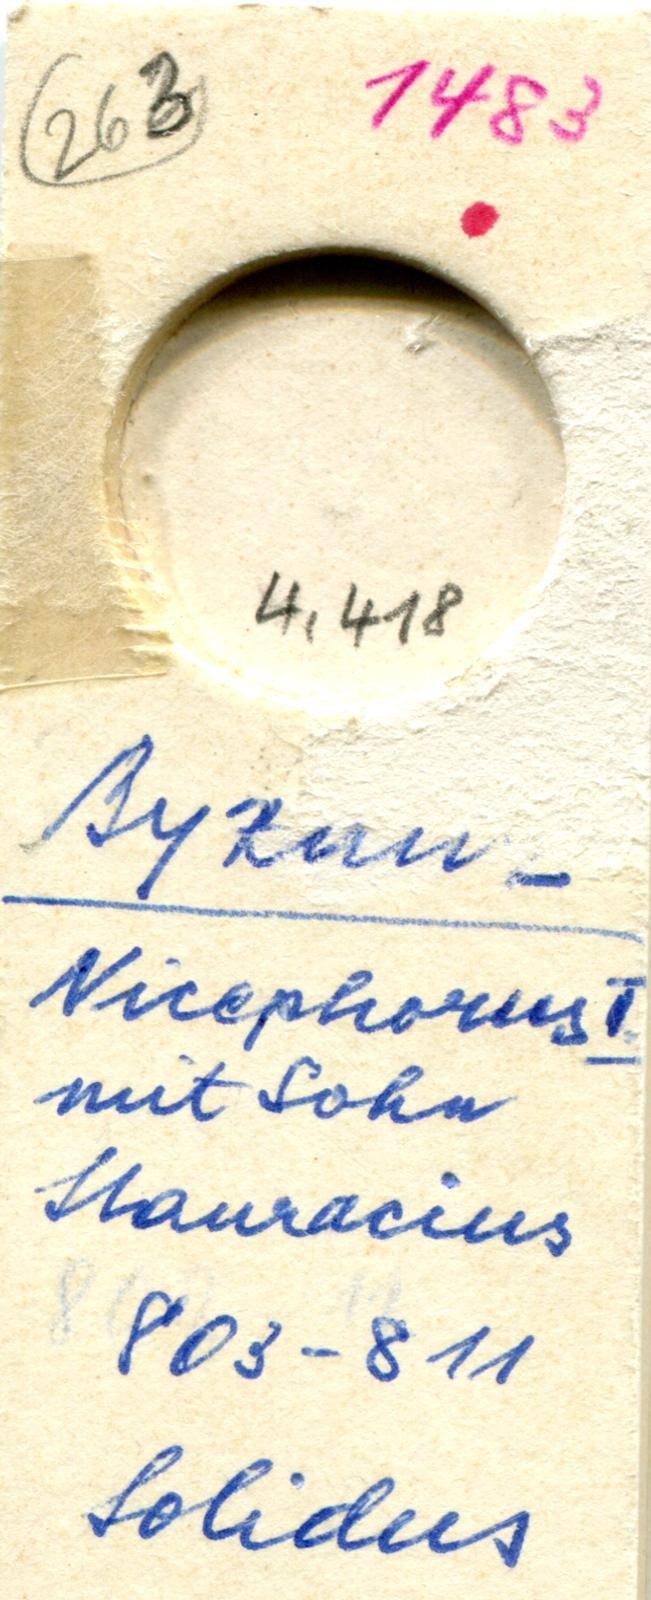 263
1483
4,418
Byzan-
Nicephorus I.
mit Sohn
Stauracius
803-811
Solidus